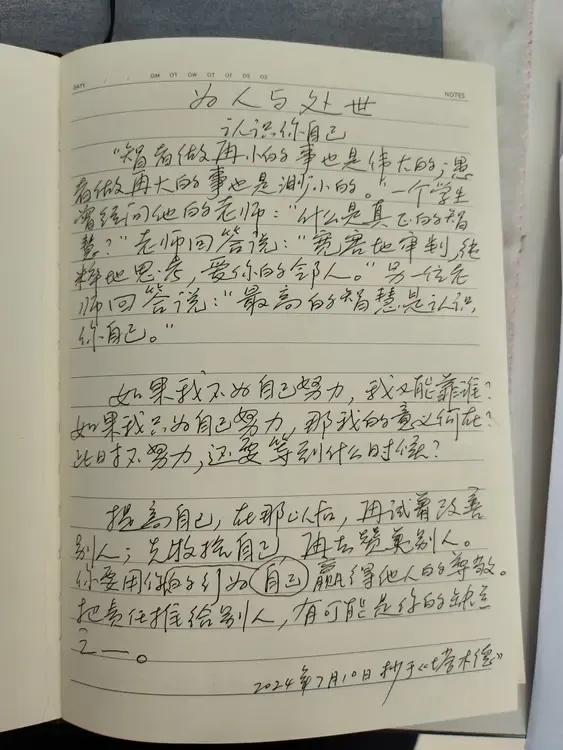 DATE / / OM OT OW OT OF OS OS
NOTES
为人与处世
认识你自己
“智者做再小的事也是伟大的；愚
者做再大的事也是渺小的。”一个学生
曾经问他的老师：“什么是真正的智
慧？”老师回答说：“宽害地审判，纯
粹地思考，爱你的邻人。”另一位老
师回答说：“最高的智慧是认识
你自己。”
如果我不为自己努力，我又能靠谁？
如果我只为自己努力，那我的意义何在？
此时不努力，还要等到什么时候？
提高自己，在那以后，再试着改善
别人；先收拾自己 再去赞美别人。
你要用你的行为自己赢得他人的尊敬。
把责任推给别人，有可能是你的缺点
之一。
2024年7月10日 抄于《塔木德》